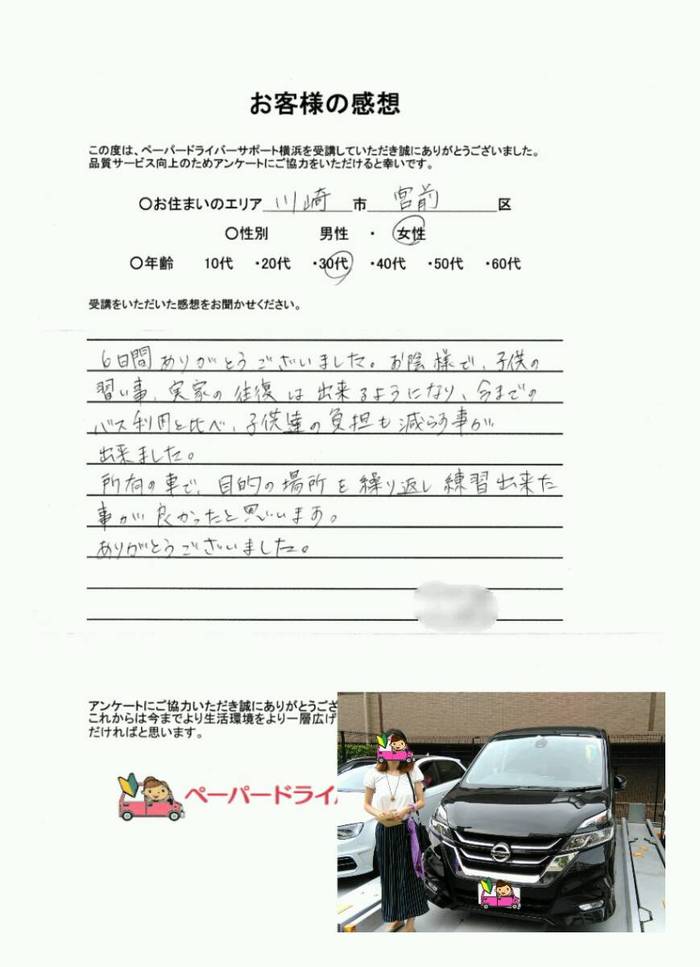 お客様の感想
この度は、ペーパードライバーサポート横浜を受講していただき誠にありがとうございました。
品質サービス向上のためアンケートにご協力をいただけると幸いです。
〇お住まいのエリア 川崎 市 宮前 区
〇性別 男性 ・ 女性
〇年齢 10代 ・20代 ・30代 ・40代 ・50代 ・60代
受講をいただいた感想をお聞かせください。
6日間ありがとうございました。お陰様で、子供の
習い事、実家の往復は出来るようになり、今までの
バス利用と比べ、子供達の負担も減らす事が
出来ました。
所有の車で、目的の場所を繰り返し練習出来た
事が良かったと思います。
ありがとうございました。
アンケートにご協力いただき誠にありがとうござ
これからは今までより生活環境をより一層広げ
だければと思います。
ペーパードライ